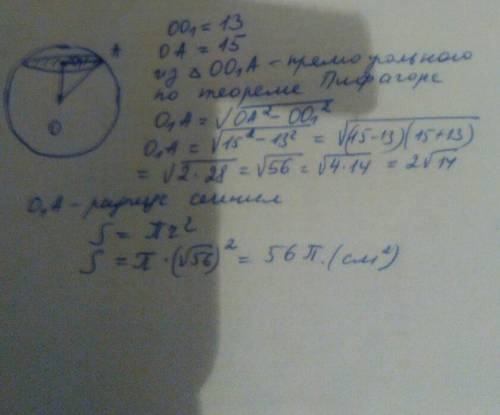 OO₁ = 13
A
OA = 15
из △ OO₁A - прямоугольного
по теореме Пифагора
O
O₁A = √OA² - OO₁²
O₁A = √15² - 13² = √(15-13)(15+13)
= √2 · 28 = √56 = √4·14 = 2√14
O₁A - радиус сечения
S = πr²
S = π · (√56)² = 56π. (см²)